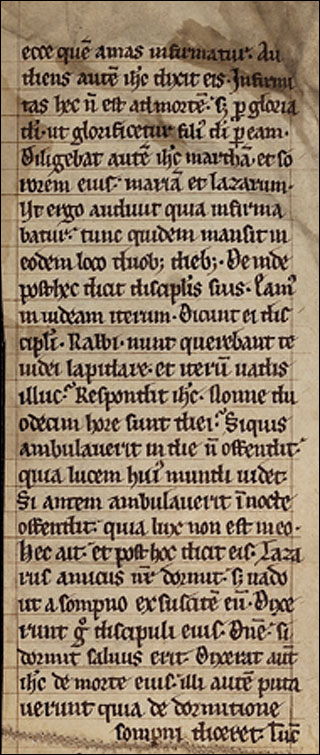 ecce quē amas infirmatur. Au
diens autē ihc dixit eis. Infirmi
tas hec n̄ est ad mortē. sȝ ꝑ gloria
dī. ut glorificetur filiꝰ dī ꝑ eam.
Diligebat autē ihc marthā. et so
rorem eius mariā et lazarum.
Ut ergo audiuit quia infirma
batur. tunc quidem mansit in
eodem loco duobꝫ diebꝫ. Deinde
post hec dicit discipĺis suis. Eamꝰ
in iudeam iterum. Dicunt ei dis
cipĺi. Rabbi. nunc querebant te
iudei lapidare. et iterū uadis
illuc. Respondit ihc. Nonne du
odecim hore sunt diei. Siquis
ambulauerit in die n̄ offendit.
quia lucem huiꝰ mundi uidet.
Si autem ambulauerit ī nocte
offendit. quia lux non est in eo.
Hec ait. et post hoc dicit eis. Laza
rus amicus nr̄ dormit. sȝ uado
ut a sompno exsuscitē eū. Dixe
runt gͦ discipuli eius. Dn̄e. si
dormit saluus erit. Dixerat aut̄
ihc de morte eius. illi autē puta
uerunt quia de dormitione
sompni diceret. Tūc